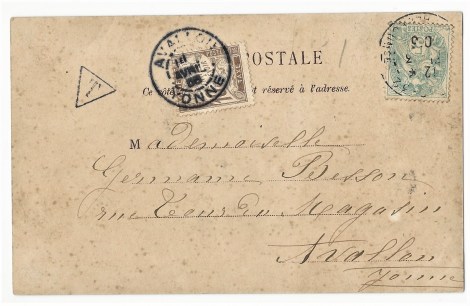 POSTALE
AVALLON
YONNE
Ce côté est réservé à l'adresse.
T
Mademoiselle
Germaine Besson
rue Tour du Magasin
Avallon
Yonne